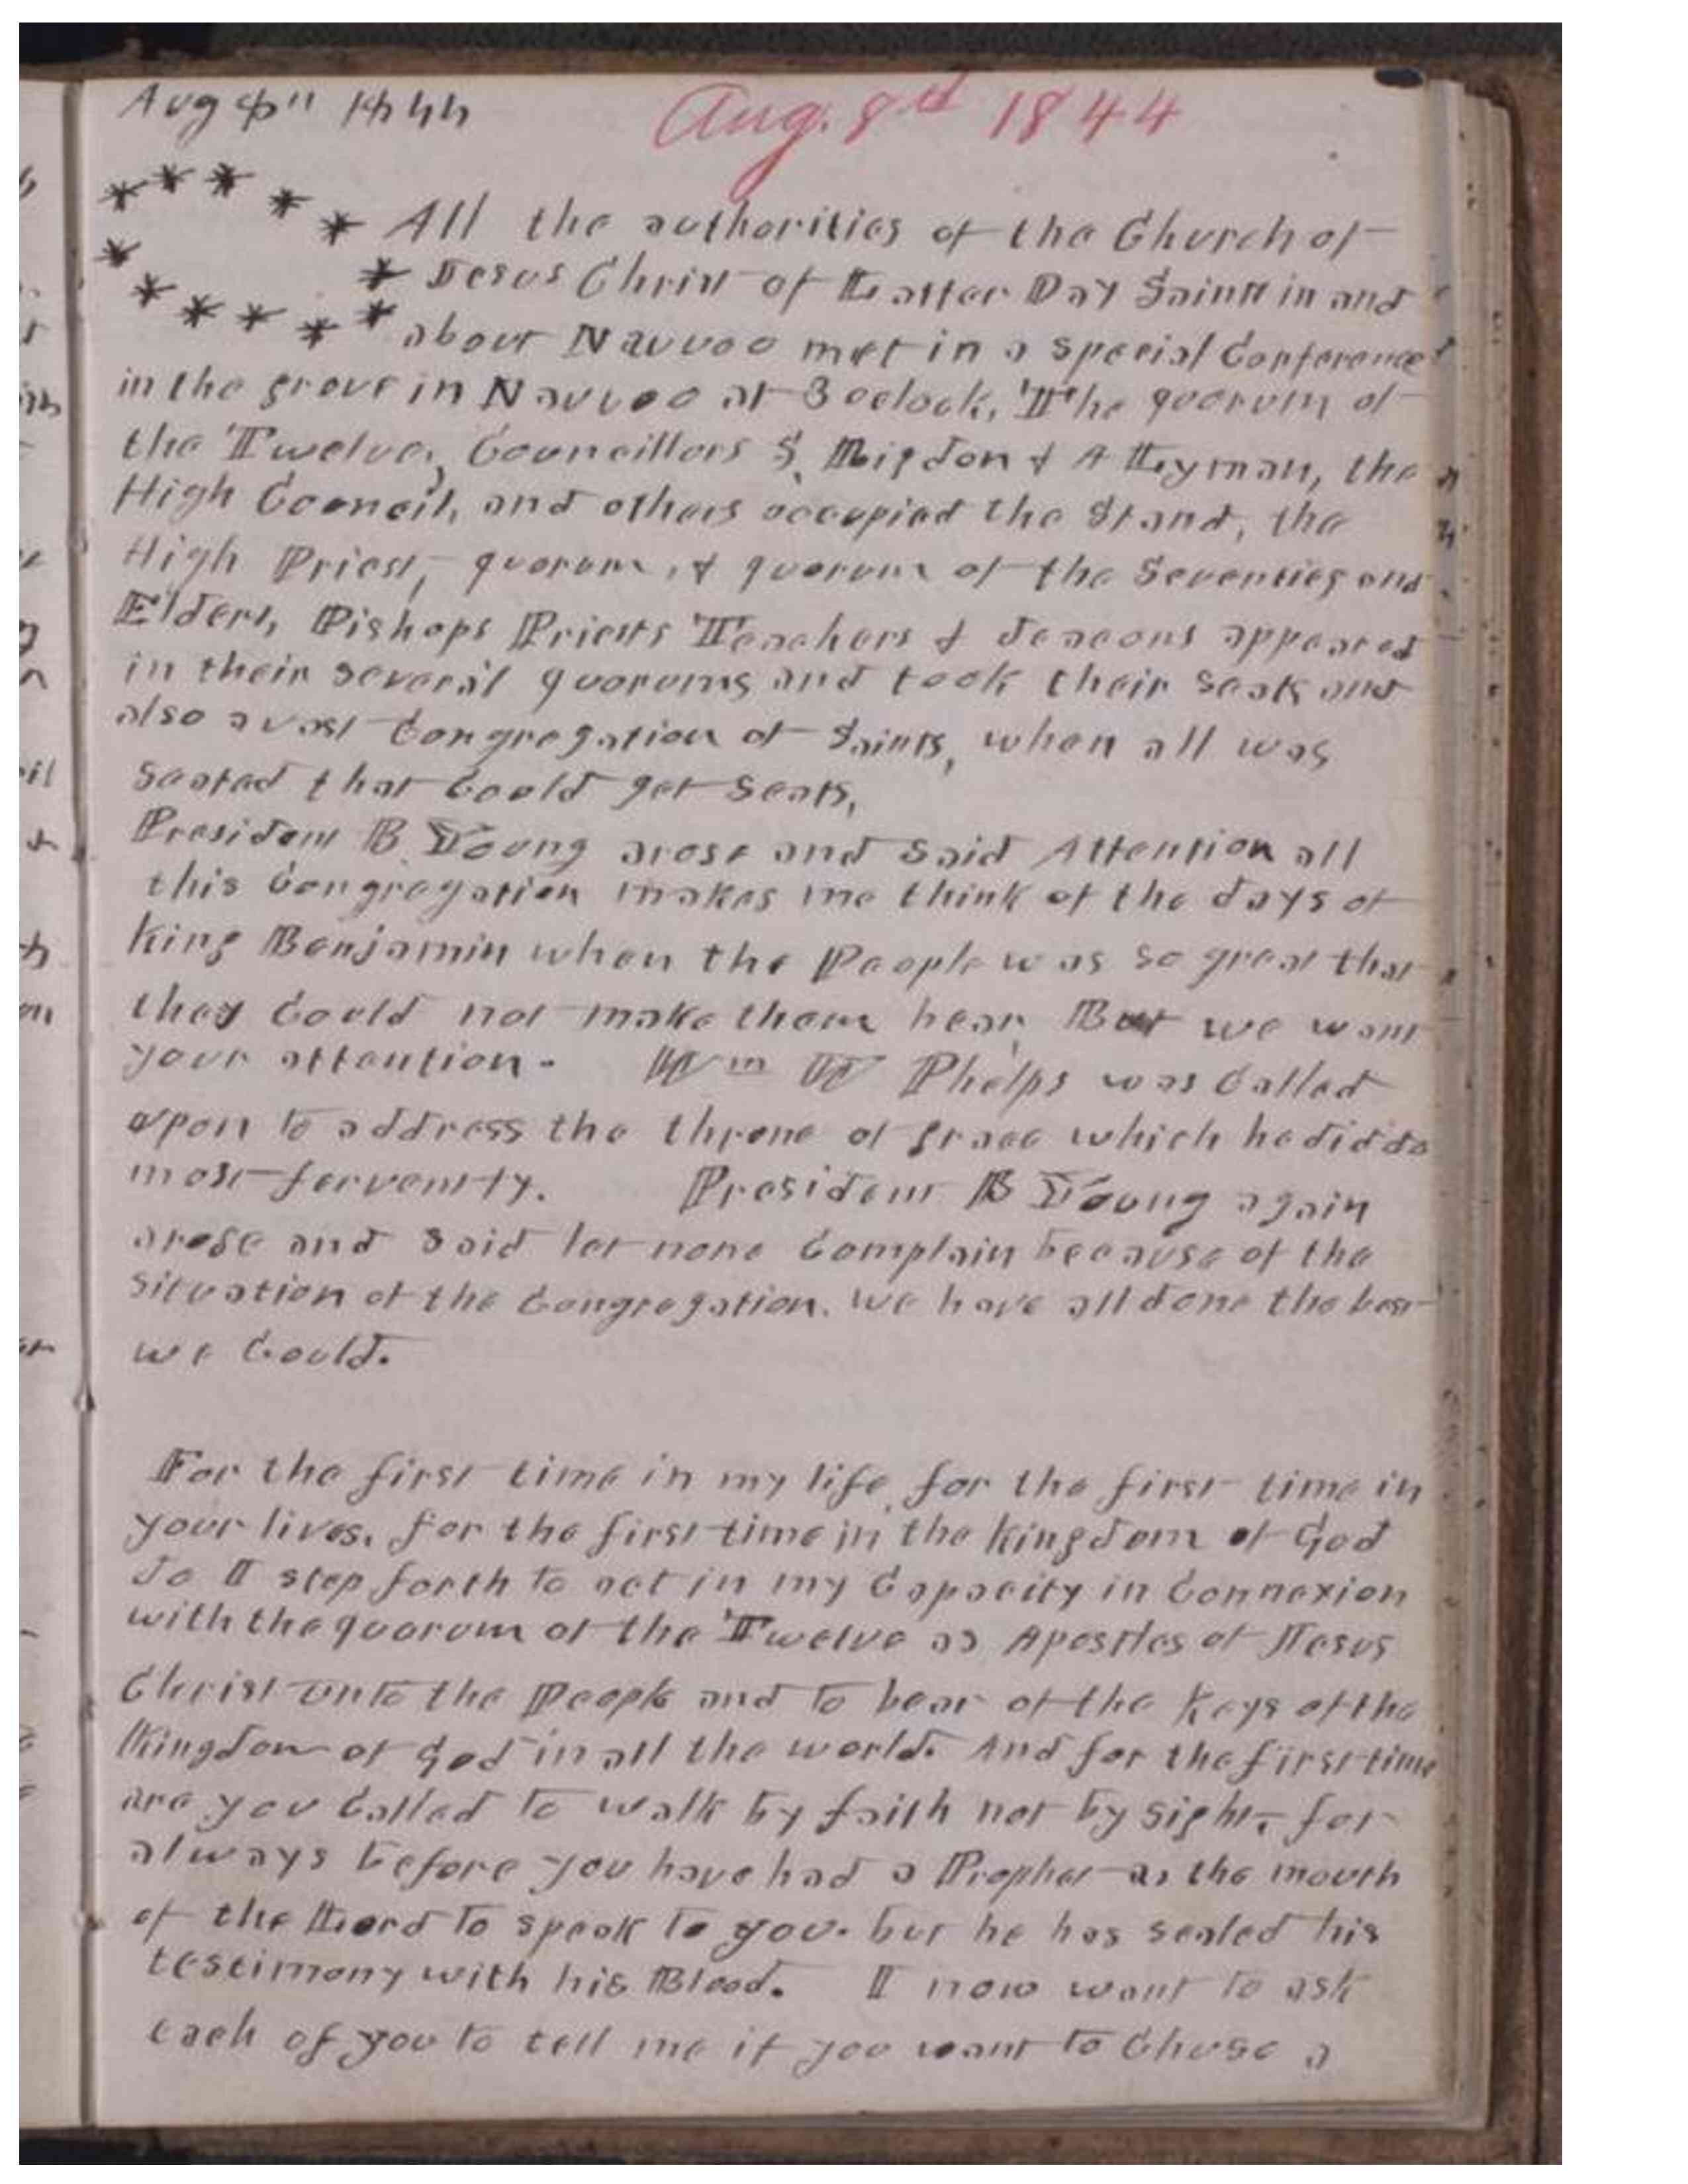 Aug 8th 1844 Aug. 8d 1844
All the authorities of the Church of
Jesus Christ of Latter Day Saints in and
about Nauvoo met in a special Conference
in the grove in Nauvoo at 3 oclock, The quorum of
the Twelve, Councillors S. Rigdon & A Lyman, the
High Council, and others occupied the Stand, the
High Priest, quorum, & quorum of the Seventies and
Elders, Bishops Priests Teachers & deacons appeared
in their several quorums and took their seats and
also a vast Congregation of Saints, when all was
seated that Could get seats,
President B Young arose and said Attention all
this Congregation makes me think of the days of
King Benjamin when the People was so great that
they Could not make them hear, But we want
your attention - Wm W Phelps was Called
upon to address the throne of grace which he did do
most fervently. President B Young again
arose and said let none Complain because of the
situation of the Congregation. we have all done the best
we Could.
For the first time in my life, for the first time in
your lives, for the first time in the kingdom of God
do I step forth to act in my Capacity in Connexion
with the quorum of the Twelve as Apostles of Jesus
Christ unto the People and to bear of the Keys of the
Kingdom of God in all the world. And for the first time
are you Called to walk by faith not by sight, for
always before you have had a Prophet as the mouth
of the Lord to speak to you. but he has sealed his
testimony with his Blood. I now want to ask
each of you to tell me if you want to Chuse a